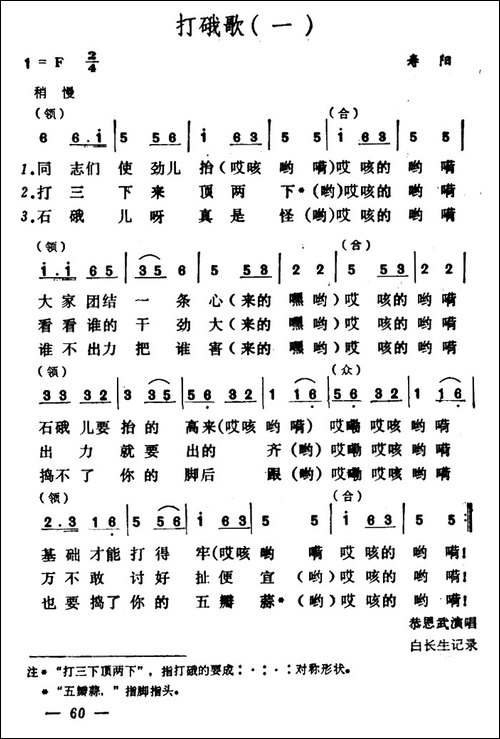 打硪歌(一)
1=F 2/4 寿阳
稍慢
(领) (合)
6 6.i 5 56 i 63 5 5 i 63 5 5
1.同志们使劲儿抬(哎咳哟嗬)哎咳的哟嗬
2.打三下来顶两下*(哟)哎咳的哟嗬
3.石硪儿呀真是怪(哟)哎咳的哟嗬
(领) (合)
i.i 65 35 5 53 2 2 5 53 2 2
大家团结一条心(来的嘿哟)哎咳的哟嗬
看看谁的干劲大(来的嘿哟)哎咳的哟嗬
谁不出力把谁害(来的嘿哟)哎咳的哟嗬
(领) (众)
33 32 1 35 56 32 1 16 56 32 1 16
石硪儿要抬的高来(哎咳哟嗬)哎嘞哎咳哟嗬
出力就要出的齐(哟)哎嘞哎咳哟嗬
捣不了你的脚后跟(哟)哎嘞哎咳哟嗬
(领) (合)
2.3 16 5 56 i 63 5 5 i 63 5 5
基础才能打得牢(哎咳哟嗬哎咳的哟嗬!
万不敢讨好扯便宜(哟)哎咳的哟嗬!
也要捣了你的五瓣蒜*(哟)哎咳的哟嗬!
恭恩武演唱
白长生记录
注*“打三下顶两下”,指打硪的要成:·:·:对称形状。
*“五瓣蒜,”指脚指头。
— 60 —